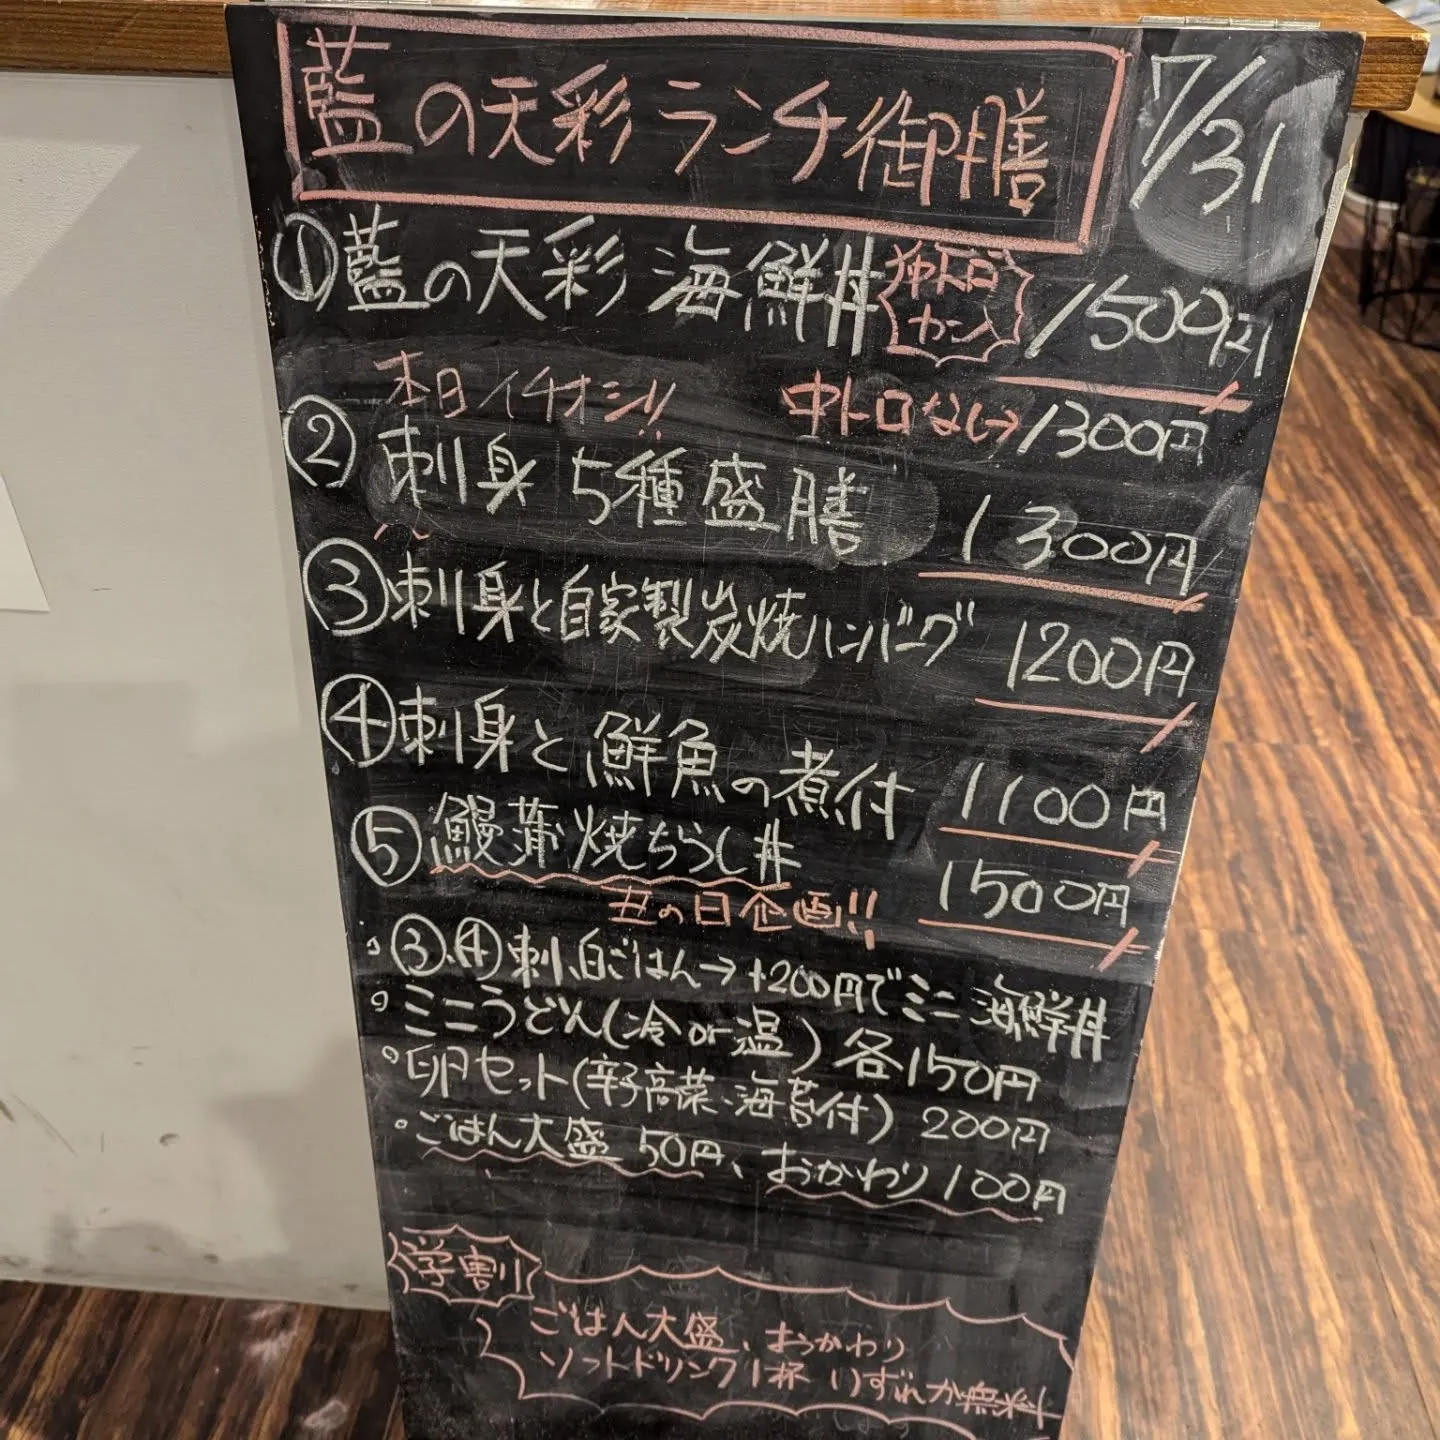 藍の天彩 ランチ御膳
7/31
①藍の天彩 海鮮丼 1500円
本日イチオシ!! 中トロなし→1300円
②刺身 5種盛膳 1300円
③刺身と自家製炭焼ハンバーグ 1200円
④刺身と鮮魚の煮付 1100円
⑤鰻蒲焼ちらし丼 1500円
丑の日企画!!
③、④刺、白ごはん→+200円でミニ海鮮丼
ミニうどん(冷or温)各150円
卵セット(辛子高菜・海苔付) 200円
ごはん大盛 50円、おかわり100円
学割
ごはん大盛、おかわり
ソフトドリンク1杯 いずれか無料